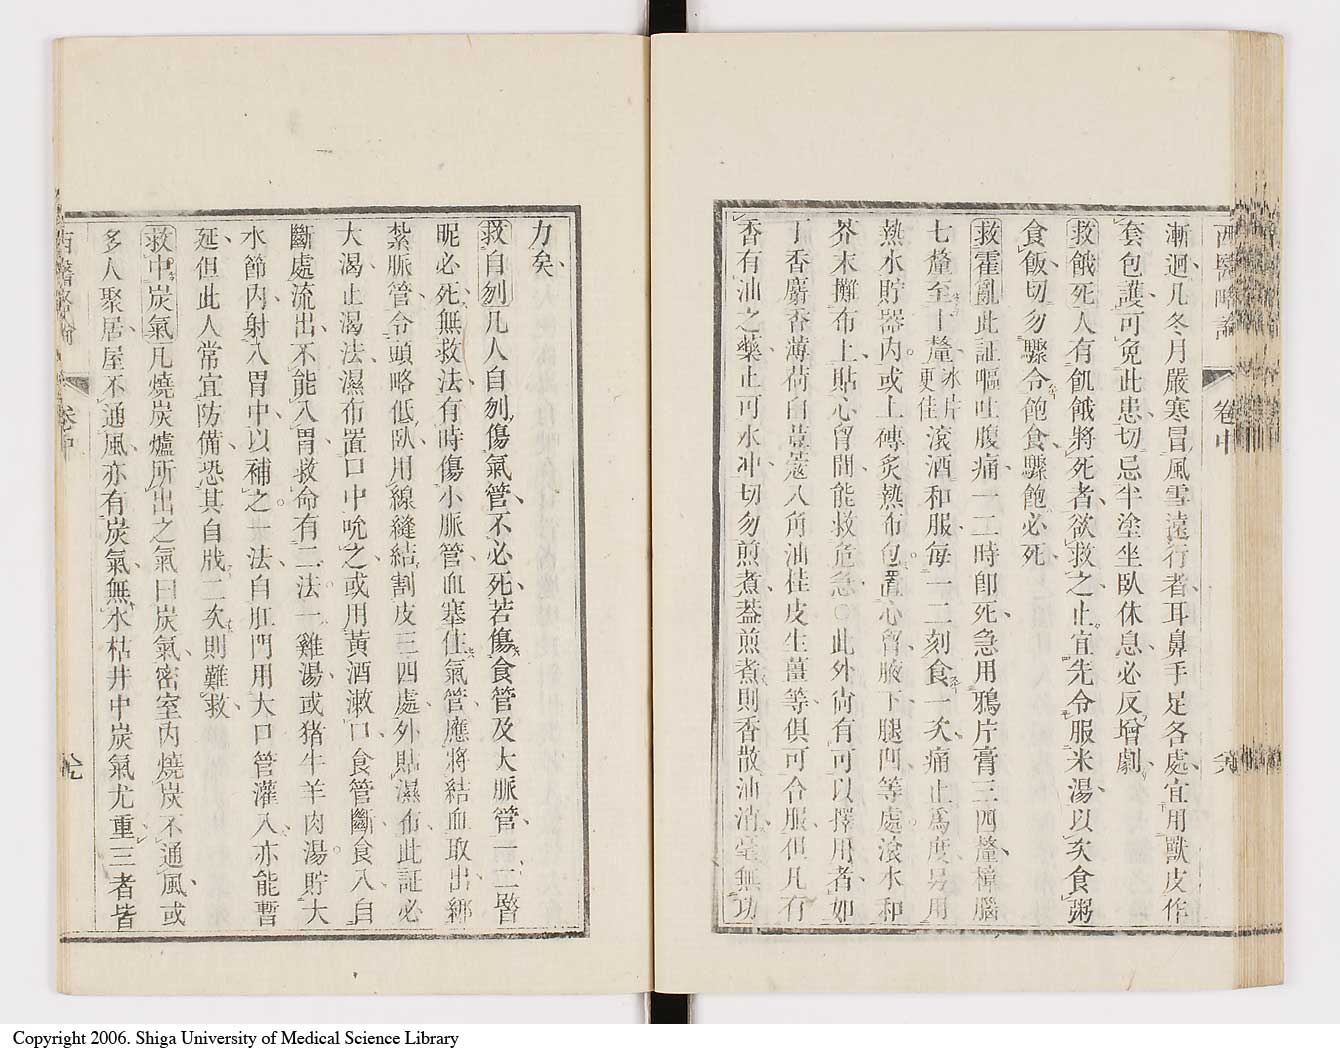 西醫略論 卷中
漸迴凡冬月嚴寒冒風雪遠行者耳鼻手足各處宜用獸皮作
套包護可免此患切忌半塗坐臥休息必反增劇
救餓死人有飢餓將死者欲救之止宜先令服米湯以次食粥
食飯切勿驟令飽食驟飽必死
救霍亂此証嘔吐腹痛一二時卽死急用鴉片膏三四釐樟腦
七釐至十釐冰片更佳滾酒和服每一二刻食一次痛止爲度另用
熱水貯器內或土磚炙熱布包置心胷腋下腿凹等處滾水和
芥末攤布上貼心胷間能救危急○此外尙有可以擇用者如
丁香麝香薄荷白荳蔻八角油佳皮生薑等俱可合服但凡有
香有油之藥止可水冲切勿煎煮葢煎煮則香散油消毫無功
力矣
救自刎凡人自刎傷氣管不必死若傷食管及大脈管一二瞥
昵必死無救法有時傷小脈管血塞住氣管應將結血取出綁
紮脈管令頭略低臥用線縫結割皮三四處外貼濕布此証必
大渴止渴法濕布置口中吮之或用黃酒漱口食管斷食入自
斷處流出不能入胃救命有二法一雞湯或猪牛羊肉湯貯大
水節內射入胃中以補之一法自肛門用大口管灌入亦能暫
延但此人常宜防備恐其自戕二次則難救
救中炭氣凡燒炭爐所出之氣曰炭氣密室內燒炭不通風或
多人聚居屋不通風亦有炭氣無水枯井中炭氣尤重三者皆
西醫略論 卷中
Copyright 2006. Shiga University of Medical Science Library